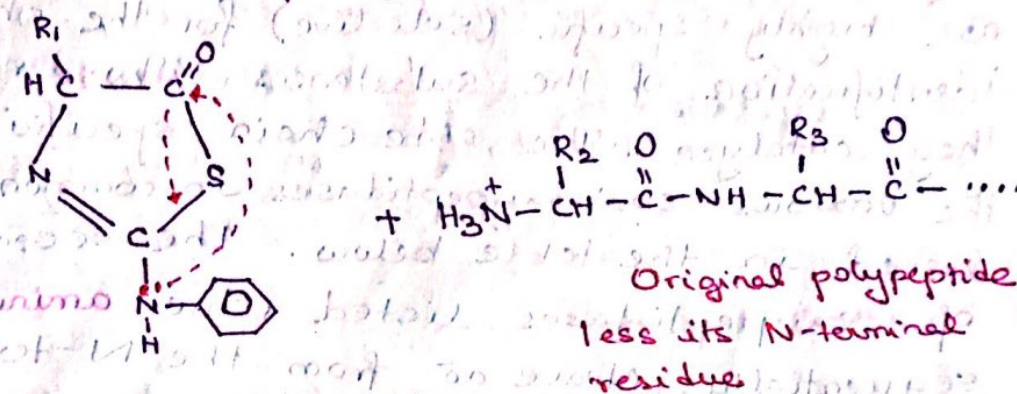 R₁
H C — C = O
N
S
C
N
H
+ H₃N⁺ – CH – C – NH – CH – C – ....
R₂ O R₃ O
Original polypeptide
less its N-terminal
residue